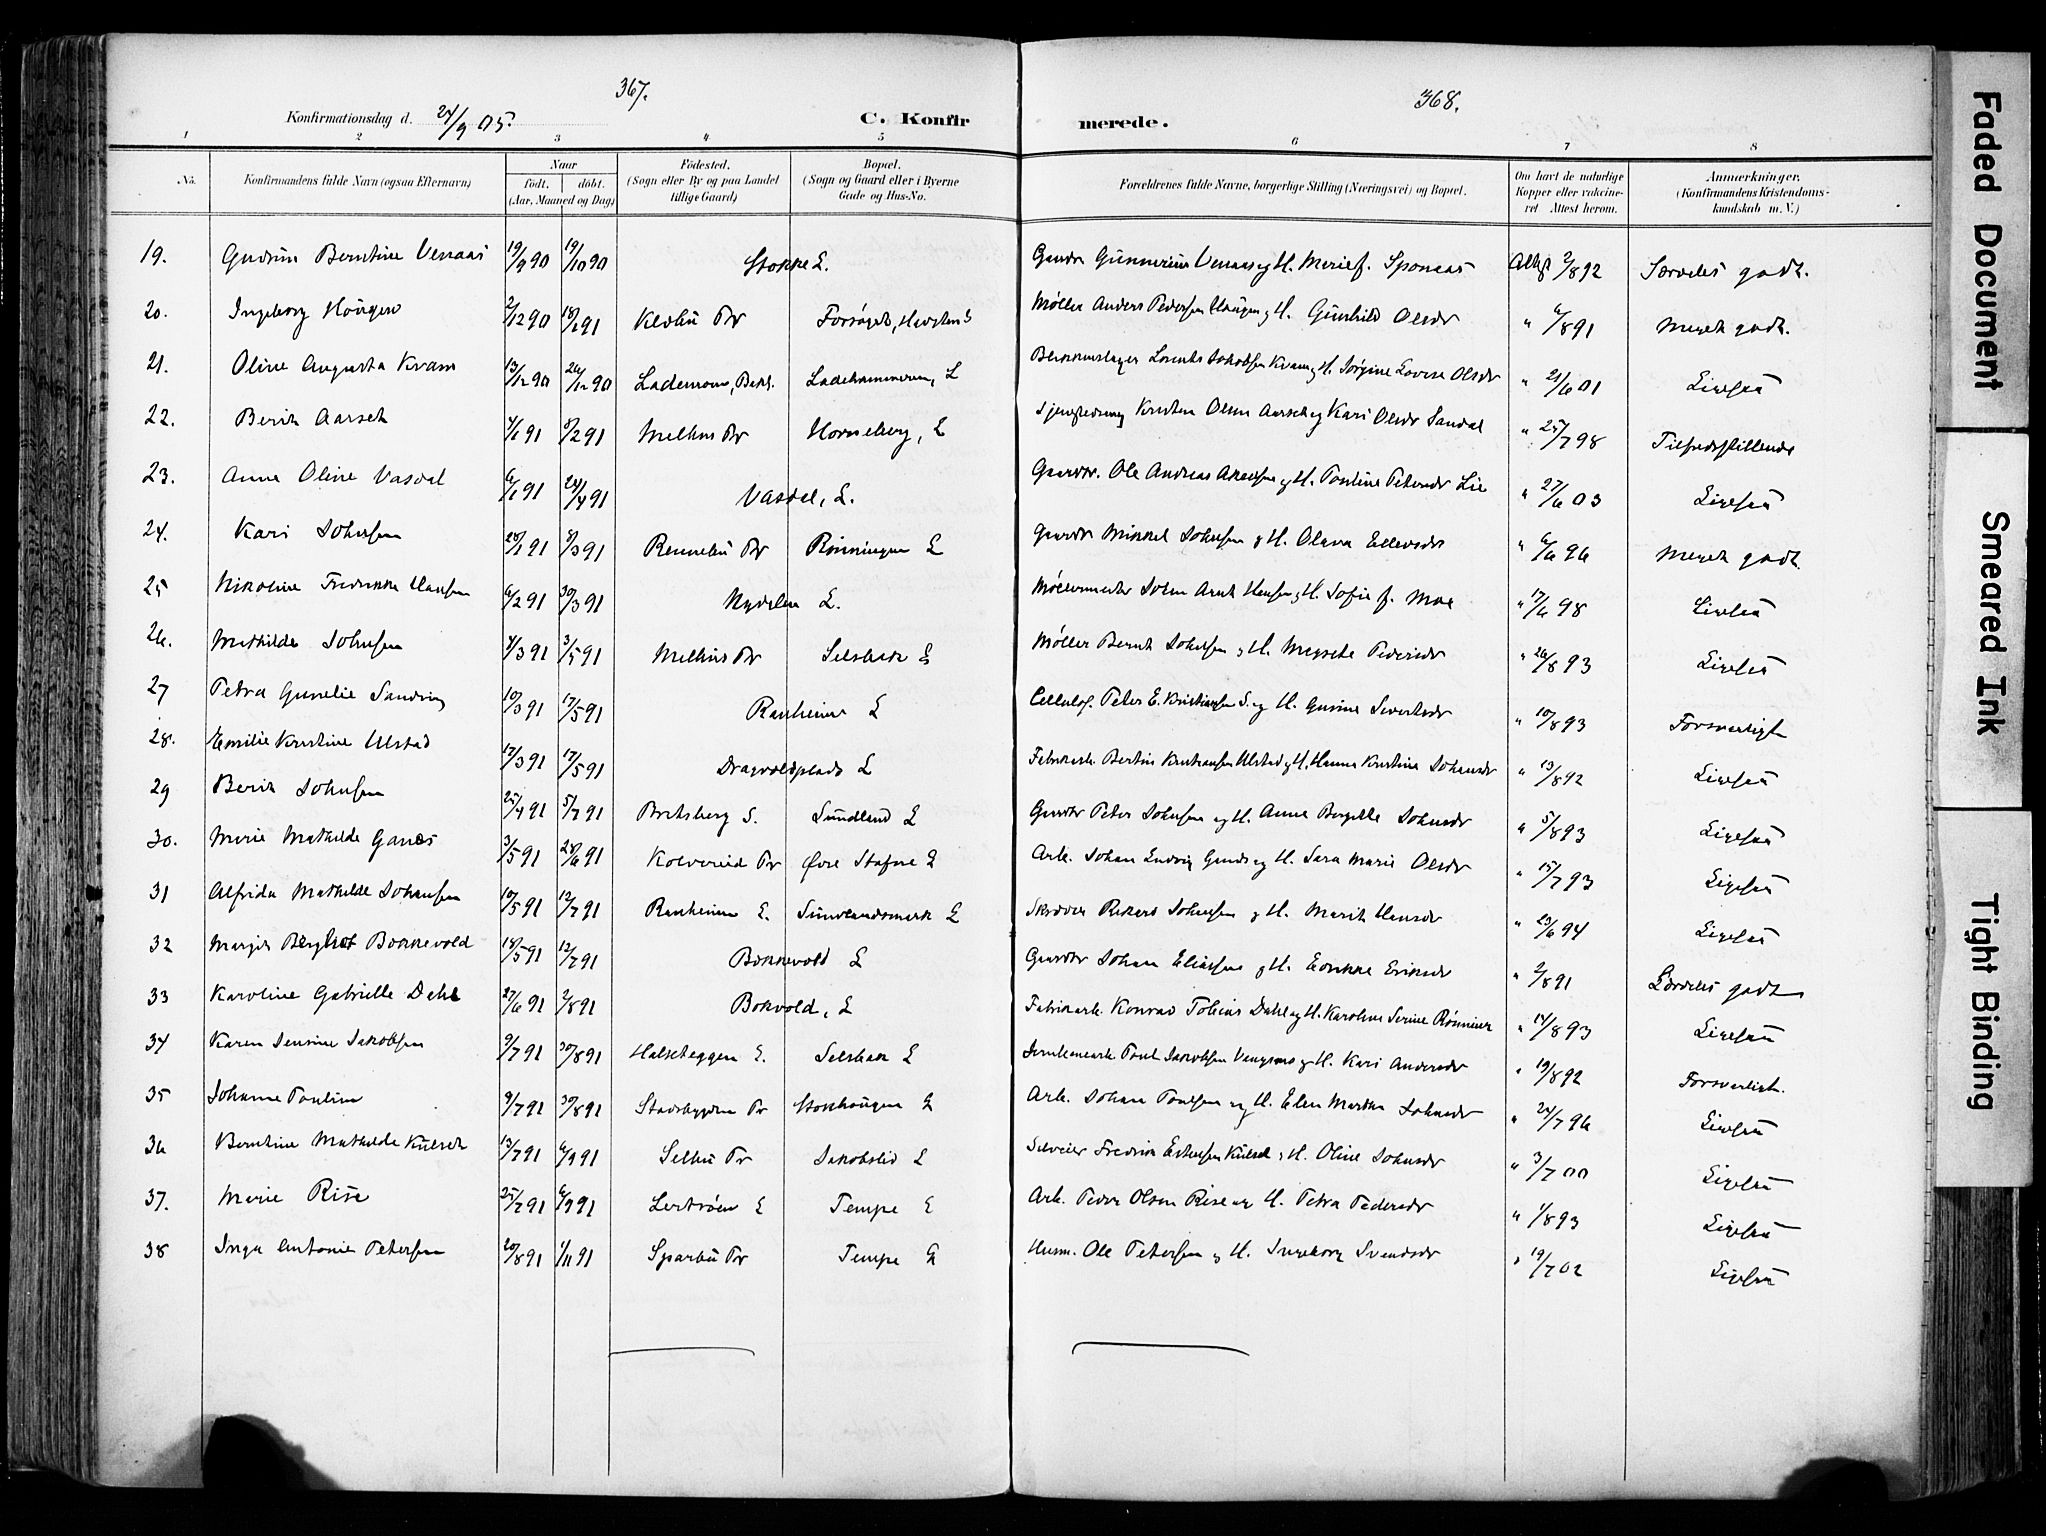 367.
368.
Konfirmationsdag d. 24/9 05.
C. Konfirmerede.
1 2 3 4 5 6 7 8
No. Konfirmandens fulde Navn (ogsaa Efternavn) Naar født. døbt. (Aar, Maaned og Dag) Fødested. (Sogn eller By og paa Landet tillige Gaard) Bopæl. (Sogn og Gaard eller i Byerne Gade og Hus-No. Forældrenes fulde Navne, borgerlige Stilling (Næringsvei) og Bopæl. Om havt de naturlige Kopper eller vaccineret Attest herom. Anmærkninger. (Konfirmandens Kristendomskundskab m. V.)
19. Gudrun Berntine Venaas 19/9 90 19/10 90 Stokke E. Gunnerius Venaas og H. Merie f. Sponaas 2/8 92 Særdeles godt.
20. Ingeborg Haugen 2/12 90 18/1 91 Klæbu Pr Møller Anders Pedersen Haugen og H. Gunhild Olsdr " 6/8 91 Meget godt.
21. Oline Augusta Kvam 13/12 90 26/12 90 Lademoen, Bakl. Ladehammeren, L Lorents Jakobsen Kvam og H. Jørgine Lovise Olsdr " 21/6 01 Ligesaa
22. Berit Aarset 4/1 91 8/2 91 Melhus Pr Horneberg, E Kristen Olsen Aarset og Kari Olsdr Sandal " 25/7 98 Tilfredsstillende
23. Anna Oline Vasdal 6/1 91 24/4 91 Vasdal, E. Gaardbr. Ole Andreas og H. Pauline Petersdr Lie " 27/6 03 Ligesaa
24. Kari Johnsen 28/1 91 8/3 91 Rennebu Pr Rønningen E Gaardbr Mikkel Johnsen og H. Olava Ellevsdr " 6/6 96 Meget godt.
25 Nikoline Fredrikke Hansen 6/2 91 30/3 91 Nydalen E. Møllermester Johan Arnt Hansen og H. Sofie f. Moe " 17/6 98 Ligesaa
26. Mathilde Johnsen 4/3 91 3/5 91 Melhus Pr Selsbak E Møller Bernt Johnsen og H. Pedersdr " 26/8 93 Ligesaa
27 Petra Gunelie Sanding 10/3 91 17/5 91 Ranheim E Cellulof. Peter E. Kristiansen S. og H. Gurine Sivertsdr " 10/8 93 Forsvarligt
28. Emilie Kristine Ulstad 17/3 91 17/5 91 Dragvoldplads E Fabrikarb. Bertin Kristiansen Ulstad og H. Hanna Kristine Johansdr " 13/8 92 Ligesaa
29 Berit Johnsen 25/4 91 5/7 91 Bratsberg S. Sundland E Gaardbr Peter Johnsen og H. Anne Johnsdr " 5/8 93 Ligesaa
30. Marie Mathilde Ganes 3/5 91 28/6 91 Kolvereid Pr Øvre Stafne E Arb. Johan Ludvig og H. Sara Marie Olsdr " 15/7 93 Ligesaa
31 Alfrida Mathilde Johansen 10/5 91 12/7 91 Ranheim E. Sundlandsmark E Skræder Johansen og H. Marit Hansdr " 23/6 94 Ligesaa
32 Margit Berghot Bokkevold 18/5 91 12/7 91 Bokkevold E Gaardbr Johan Eliassen og H. Eriksdr " 2/8 91 Særdeles godt
33 Karoline Gabrielle Dahl 27/6 91 2/8 91 Bokvold, E Fabrikarb. Konrad Tobias Dahl og H. Karoline Serine " 14/8 93 Ligesaa
34 Karen Jensine Jakobsen 9/7 91 30/8 91 Halsetheggen E. Selsbak E Jernbanearb. Paul Jakobsen og H. Kari Andersdr " 19/8 92 Forsvarligt.
35 Johanne Paulsen 9/7 91 30/8 91 Stadsbygden Pr E Arb. Johan Paulsen og H. Elen Martha Johnsdr " 24/7 96 Ligesaa
36 Berntine Mathilde Kulset 13/7 91 6/9 91 Selbu Pr Jakobslid E Fredrik Kulset og H. Oline Johnsdr " 3/7 00 Ligesaa
37. Marie Rise 25/7 91 6/9 91 Lertrøen E Tempe E Arb. Peder Olsen Rise og H. Petra Pedersdr " 1/8 93 Ligesaa
38 Inga Antonie Petersen 20/8 91 1/11 91 Sparbu Pr Tempe E Husm. Ole Petersen og H. Ingeborg Svendsdr " 19/7 02 Ligesaa
Faded Document
Smeared Ink
Tight Binding